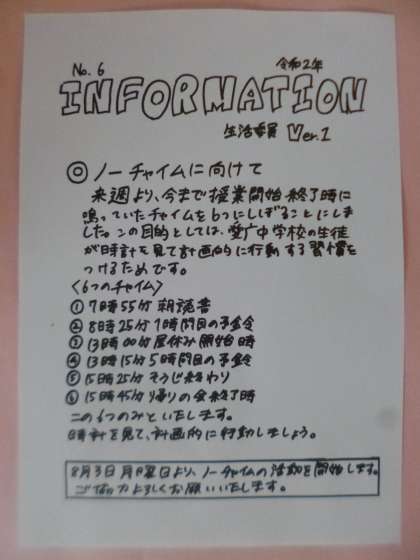 No. 6
令和2年
INFORMATION
生活委員 Ver.1
◎ ノーチャイムに向けて
来週より、今まで授業開始終了時に
鳴っていたチャイムを6つにしぼることにしま
した。この目的としては、愛広中学校の生徒
が時計を見て計画的に行動する習慣を
つけるためです。
〈6つのチャイム〉
① 7時55分 朝読書
② 8時25分 1時間目の予鈴
③ 13時00分 昼休み開始時
④ 13時15分 5時間目の予鈴
⑤ 15時25分 そうじ終わり
⑥ 15時45分 帰りの会終了時
この6つのみといたします。
時計を見て、計画的に行動しましょう。
8月3日月曜日より、ノーチャイムの活動を開始します。
ご協力よろしくお願いいたします。